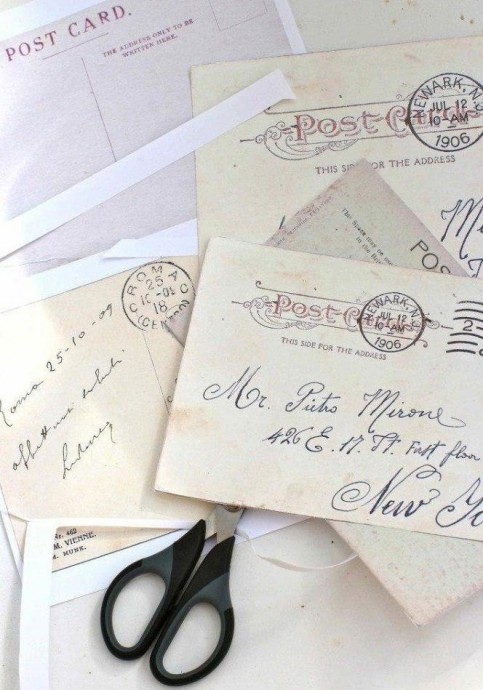 POST CARD.
THE ADDRESS ONLY TO BE
WRITTEN HERE.
NEWARK, N.J.
JUL 12
10-AM
1906
Post-Card
THIS SIDE FOR THE ADDRESS
POS
ROMA
25
18
Roma 25-10-09
NEWARK, N.J.
JUL 12
10-AM
1906
Post-Card
THIS SIDE FOR THE ADDRESS
2
Mr. Pietro Mirone
426 E. 17. St. First floor
New Yo
No. 462
M. VIENNE.
M. MUNK.